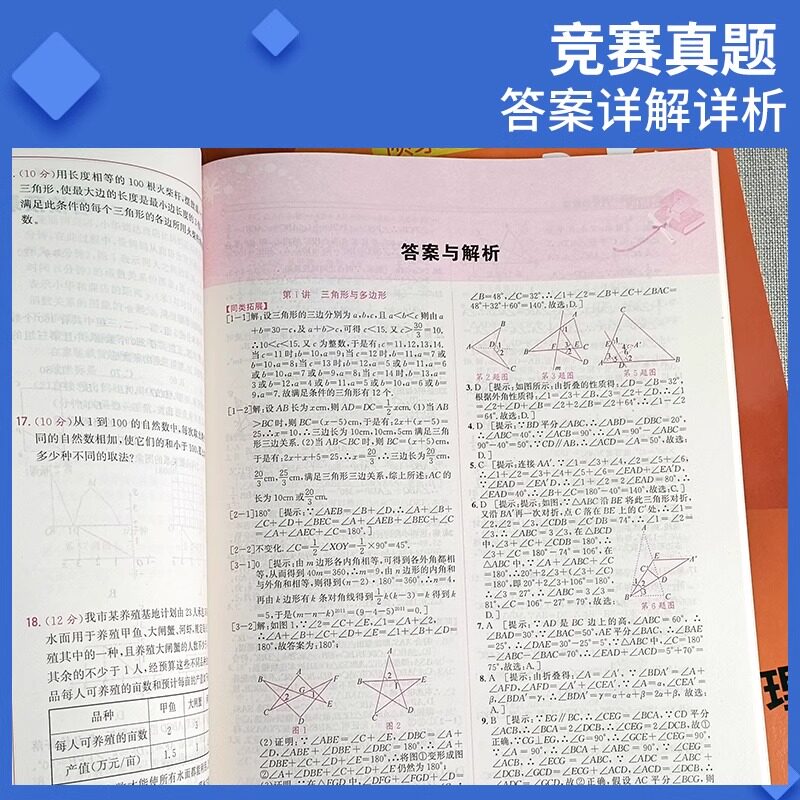 竞赛真题
答案详解详析
(10分)用长度相等的100根火柴杆,
三角形,使最大边的长度是最小边长度的
满足此条件的每个三角形的各边所用火柴
数。
17.(10分)从1到100的自然数中,每次
同的自然数相加,使它们的和小于100,
多少种不同的取法?
18.(12分)我市某养殖基地计划由23人
水面用于养殖甲鱼、大闸蟹、河虾,
殖其中的一种,且养殖大闸蟹的人数不少
其余的不少于1人,经预算这些不同品
品每人可养殖的亩数和预计每亩的产
品种 甲鱼 大闸蟹
每人可养殖的亩数 2 3
产值(万元/亩) 1.5 1
答案与解析
第1讲 三角形与多边形
【同类拓展】
[1-1]解:设三角形的三边分别为a,b,c,且a<b<c则由a
+b=30-c,及a+b>c,可得c<15.又c>30/3=10,
∴10<c<15.又c为整数,于是有:c=11,12,13,14.
当c=11时:b=10,a=9;当c=12时,b=11,a=7或
b=10,a=8;当c=13时:b=12,a=5或b=11,a=6
或b=10,a=7或b=9,a=8;当c=14时,b=13,a=
3或b=12,a=4或b=11,a=5或b=10,a=6或b=
9,a=7.故满足条件的三角形有12个.
[1-2]解:设AB长为x cm,则AD=DC=1/2x cm.(1)当AB
>BC时,则BC=(x-5)cm,于是有:2x+(x-5)=
25.∴x=10.∴三边长为10cm,10cm,5cm满足三角
形三边关系.(2)当AB<BC时,则BC=(x+5)cm,
于是有:2x+x+5=25.∴x=20/3.∴三边长为20/3cm,
20/3cm,35/3cm,满足三角形三边关系,综上所述:AC的
长为10cm或20/3cm.
[2-1]180° [提示:∵∠AEB=∠B+∠D,∴∠A+∠B+
∠C+∠D+∠BEC=∠A+∠AEB+∠BEC+∠C
=∠A+∠AEC+∠C=180°.]
[2-2]不变化.∠C=1/2∠XOY=1/2×90°=45°.
[3-1]0 [提示:由m边形各内角相等,可得到各外角都相
等,从而得到40m=360,∴m=9,由n边形的内角和
与外角和相等,则得到(n-2)·180°=360°,∴n=4.
再由k边形有k条对角线得到1/2k(k-3)=k得到k
=5,于是(m-n-k)²⁰¹¹=(9-4-5)²⁰¹¹=0.]
[3-2]解:如图1,∵∠2=∠C+∠E,∠1=∠A+∠2,
∴∠A+∠B+∠C+∠D+∠E=∠1+∠B+∠D=
180°,故答案为:180°;
图1 图2
(2)证明:∵∠ABE=∠C+∠E,∠DBC=∠A+
∠D,∠ABE+∠DBE+∠DBC=180°,∴∠A+
∠DBE+∠C+∠D+∠E=180°;∴将图①变形成图
②∠A+∠DBE+∠C+∠D+∠E仍然为180°;
(3)证明:∵在△FGD中,∠DFG+∠FGD+∠D
∠B=48°,∠C=32°,∴∠1+∠2=∠B+∠C+∠BAC=
48°+32°+60°=140°.故选:D.]
第2题图 第3题图 第5题图
3.D [提示:如图所示:由折叠的性质得:∠D=∠B=32°,
根据外角性质得:∠1=∠3+∠B,∠3=∠2+∠D,∴∠1=
∠2+∠D+∠B=∠2+2∠B=∠2+64°,∴∠1-∠2
=64°.故选:D.]
4.D [提示:∵BD平分∠ABC,∴∠ABD=∠DBC=20°,
∴∠ABC=40°,∵∠ACB=90°,∴∠A=90°-∠ABC=
90°-40°=50°,∵CD∥AB,∴∠ACD=∠A=50°,故选:
D.]
5.C [提示:连接AA′.∵∠1=∠3+∠4,∠2=∠5+∠6,
∴∠1+∠2=∠3+∠4+∠5+∠6=∠EAD+∠EA′D.
∵∠EAD=∠EA′D,∴∠1+∠2=2∠EAD=80°,∴
∠EAD=40°.∴∠B+∠C=180°-40°=140°.故选:C.]
6.D [提示:如图:∵△ABC沿BE将此三角形对折,
又沿BA′再一次对折,点C落在BE上的C′处,∴∠1=
∠2,∠2=∠3,∠CDB=∠C′DB=74°,∴∠1=∠2=
∠3,∴∠ABC=3∠3,在△BCD
中,∠3+∠C+∠CDB=180°,∴
∠3+∠C=180°-74°=106°,在
△ABC中,∵∠A+∠ABC+∠C
=180°,∴20°+2∠3+(∠3+∠C)
=180°,即20°+2∠3+106°=180°,
∴∠3=27°,∴∠ABC=3∠3=
81°,∠C=106°-27°=79°,故选:D.]
第6题图
7.A [提示:∵AD是BC边上的高,∠ABC=60°,∴
∠BAD=30°,∵∠BAC=50°,AE平分∠BAC,∴∠BAE
=25°,∴∠DAE=30°-25°=5°,∵△ABC中,∠C=180°
-∠ABC-∠BAC=70°,∴∠EAD+∠ACD=5°+70°=
75°,故选:A.]
8.A [提示:由折叠得:∠A=∠A′,∵∠BDA′=∠A+
∠AFD,∠AFD=∠A′+∠CEA′,∵∠A=α,∠CEA′=
β,∠BDA′=γ,∴∠BDA′=γ=α+α+β=2α+β,故选:
A.]
9.B [提示:∵EG∥BC,∴∠CEG=∠BCA,∵CD平分
∠ACB,∴∠BCA=2∠DCB,∴∠CEG=2∠DCB,故①
正确.∵CG⊥EG,∴∠G=90°,∴∠GCE+∠CEG=90°,
∵∠A=90°,∴∠BCA+∠ABC=90°,∵∠CEG=
∠ACB,∴∠ECG=∠ABC,